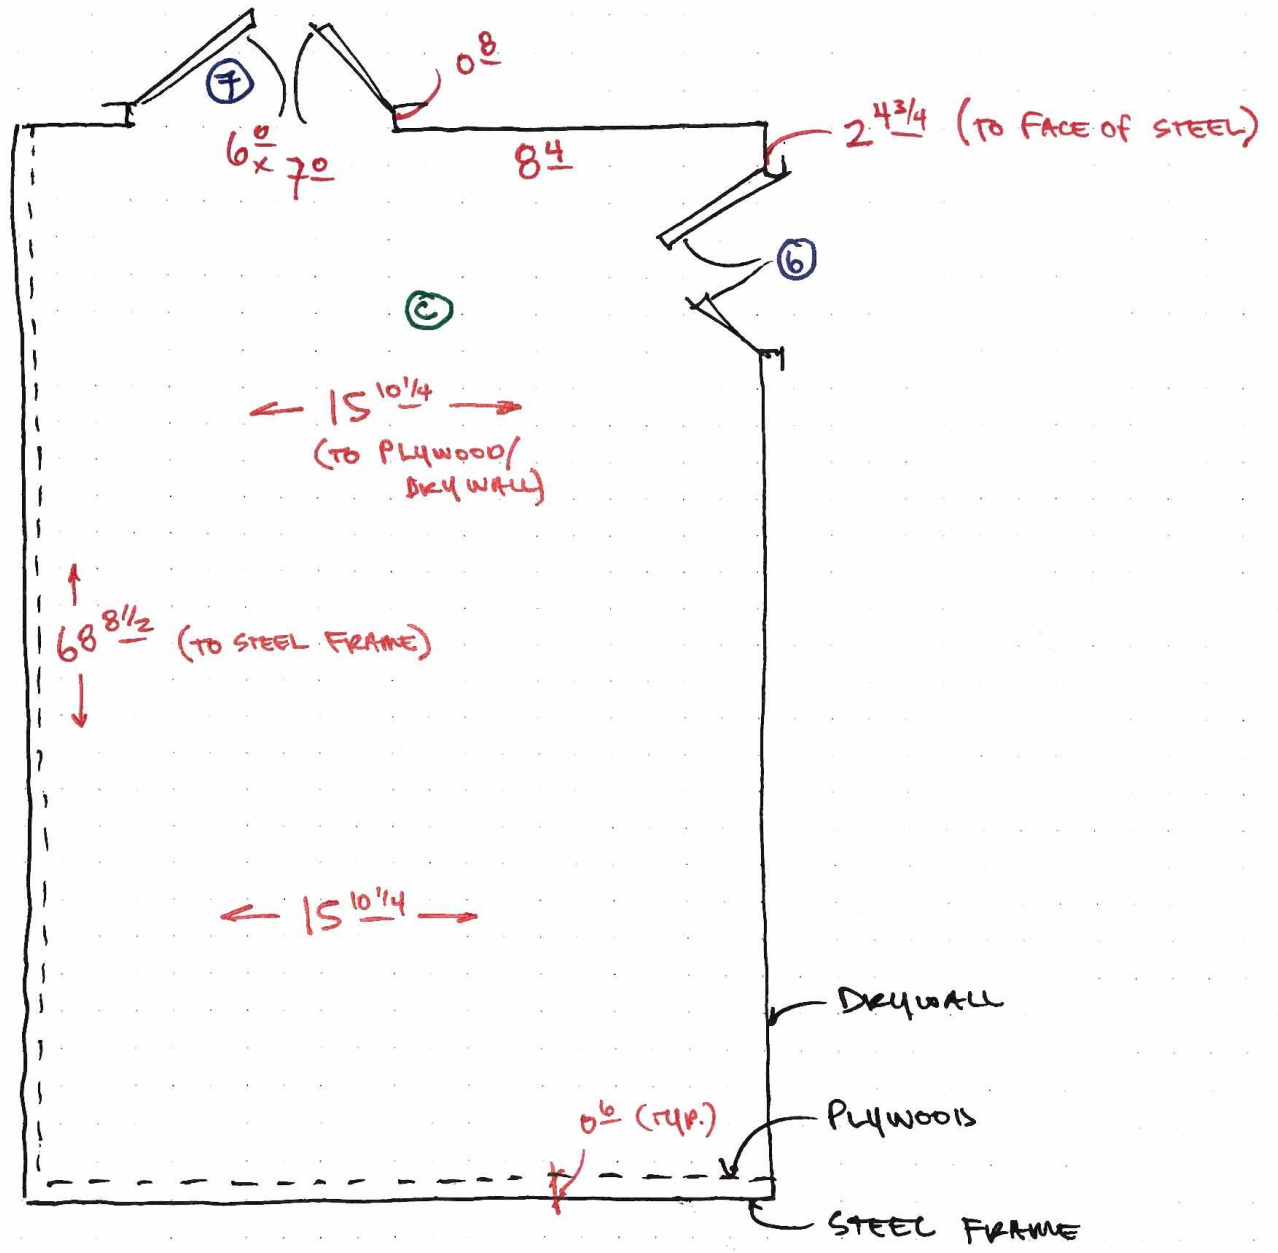 0 8
7
2 4 3/4 (TO FACE OF STEEL)
6 0
x 7 0
8 4
6
C
15 10 1/4
(TO PLYWOOD/
DRYWALL)
68 8 1/2 (TO STEEL FRAME)
15 10 1/4
DRYWALL
0 6 (TYP.)
PLYWOOD
STEEL FRAME